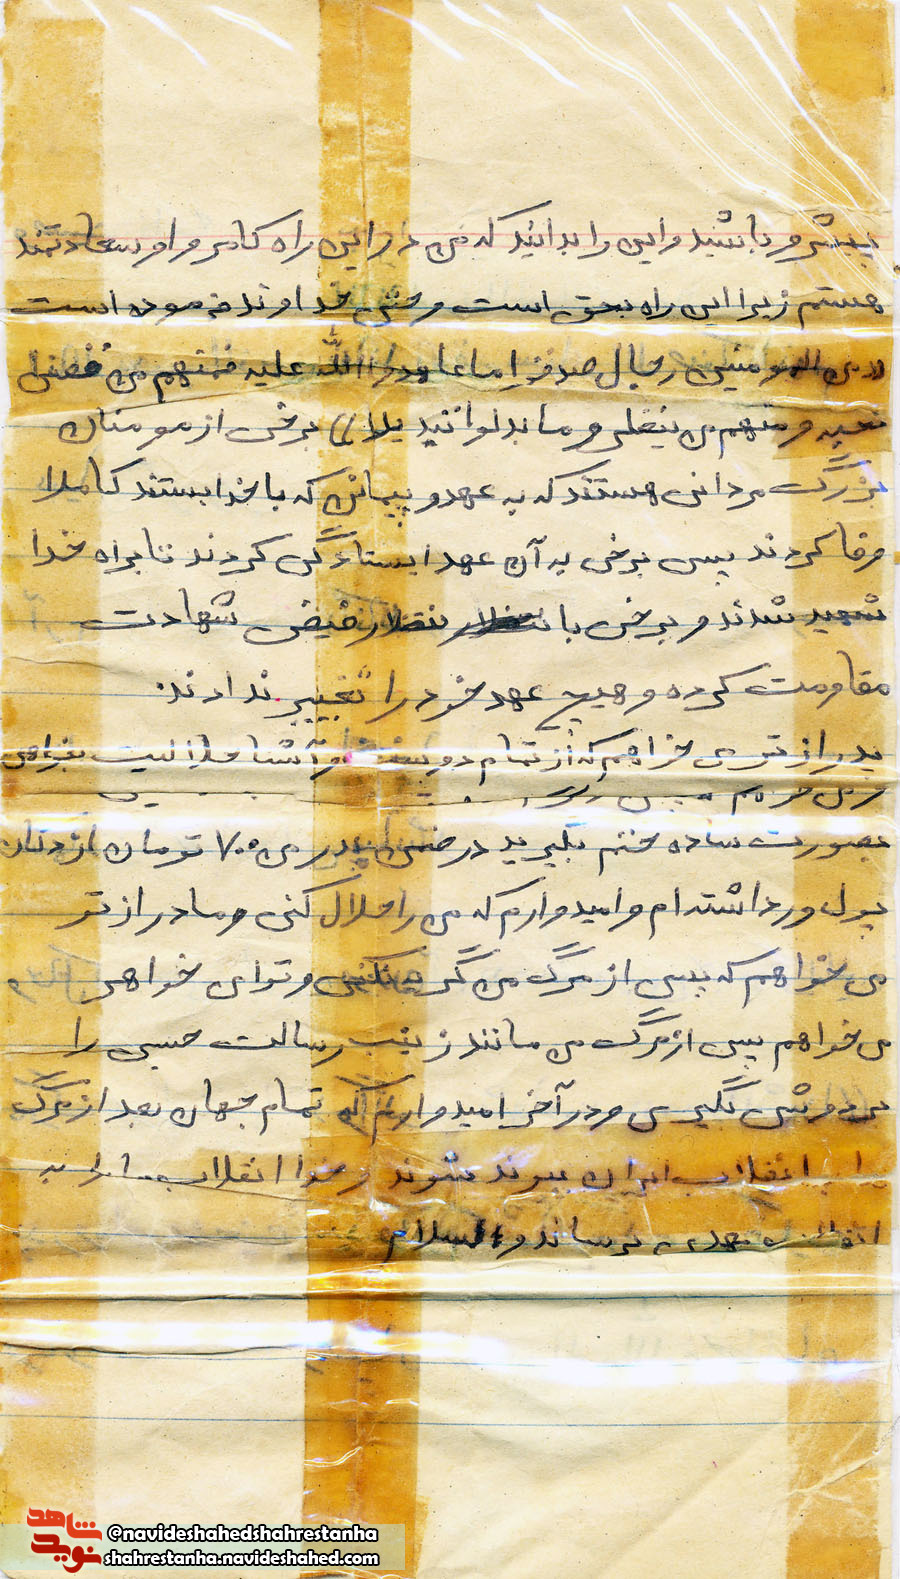 پیشرو باشید و این را بدانید که من در این راه کامروا و سعادتمند
هستم زیرا این راه بحق است و حتی خداوند فرموده است
(( من المومنین رجال صدقو اما عاهدوا الله علیه فمنهم من قضی
نحبه و منهم من ینتظر و ما بدلوا تبدیلا )) برخی از مومنان
بزرگ مردانی هستند که به عهد و پیمانی که با خدا بستند کاملا
وفا کردند پس برخی به آن عهد ایستادگی کردند تا براه خدا
شهید شدند و برخی با انتظار فیض شهادت
مقاومت کرده و هیچ عهد خود را تغییر ندادند.
پدر از تو می خواهم که از تمام دوستان و آشنا حلالیت بخواهی
بصورت ساده ختم بگیرید در ضمن پدر من ۷۰۰ تومان از دتان
پول ورداشته ام و امیدوارم که من را حلال کنی و مادر از تو
می خواهم که پس از مرگ من گریه نکنی و تو ای خواهر
می خواهم پس از مرگ من مانند زینب رسالت حسین را
بر دوش بگیری و در آخر امیدوارم که تمام جهان بعد از مرگ
انقلاب ایران شوند و خدا انقلاب را به
انقلاب مهدی برساند والسلام
شاهد
نوید
@navideshahedshahrestanha
shahrestanha.navideshahed.com